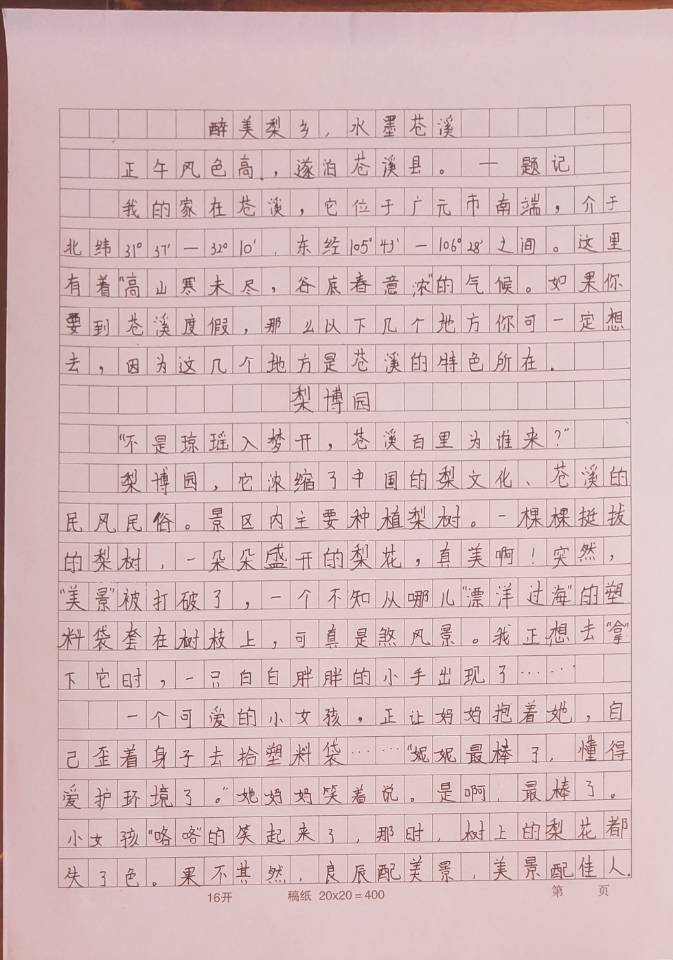 醉美梨乡,水墨苍溪
正午风色高,遂泊苍溪县。一题记
我的家在苍溪,它位于广元市南端,介于
北纬31°37′一32°10′,东经105°43′一106°28′之间。这里
有着"高山寒未尽,谷底春意浓"的气候。如果你
要到苍溪度假,那么以下几个地方你可一定想
去,因为这几个地方是苍溪的特色所在.
梨博园
"不是琼瑶入梦开,苍溪百里为谁来?"
梨博园,它浓缩了中国的梨文化、苍溪的
民风民俗。景区内主要种植梨树。一棵棵挺拔
的梨树,一朵朵盛开的梨花,真美啊!突然,
"美景"被打破了,一个不知从哪儿"漂洋过海"的塑
料袋套在树枝上,可真是煞风景。我正想去"拿"
下它时,一只白白胖胖的小手出现了……
一个可爱的小女孩,正让妈妈抱着她,自
己歪着身子去拾塑料袋……"妮妮最棒了,懂得
爱护环境了。"她妈妈笑着说。是啊,最棒了。
小女孩"咯咯"的笑起来了,那时,树上的梨花都
失了色。果不其然,良辰配美景,美景配佳人.
16开 稿纸 20x20=400 第 页